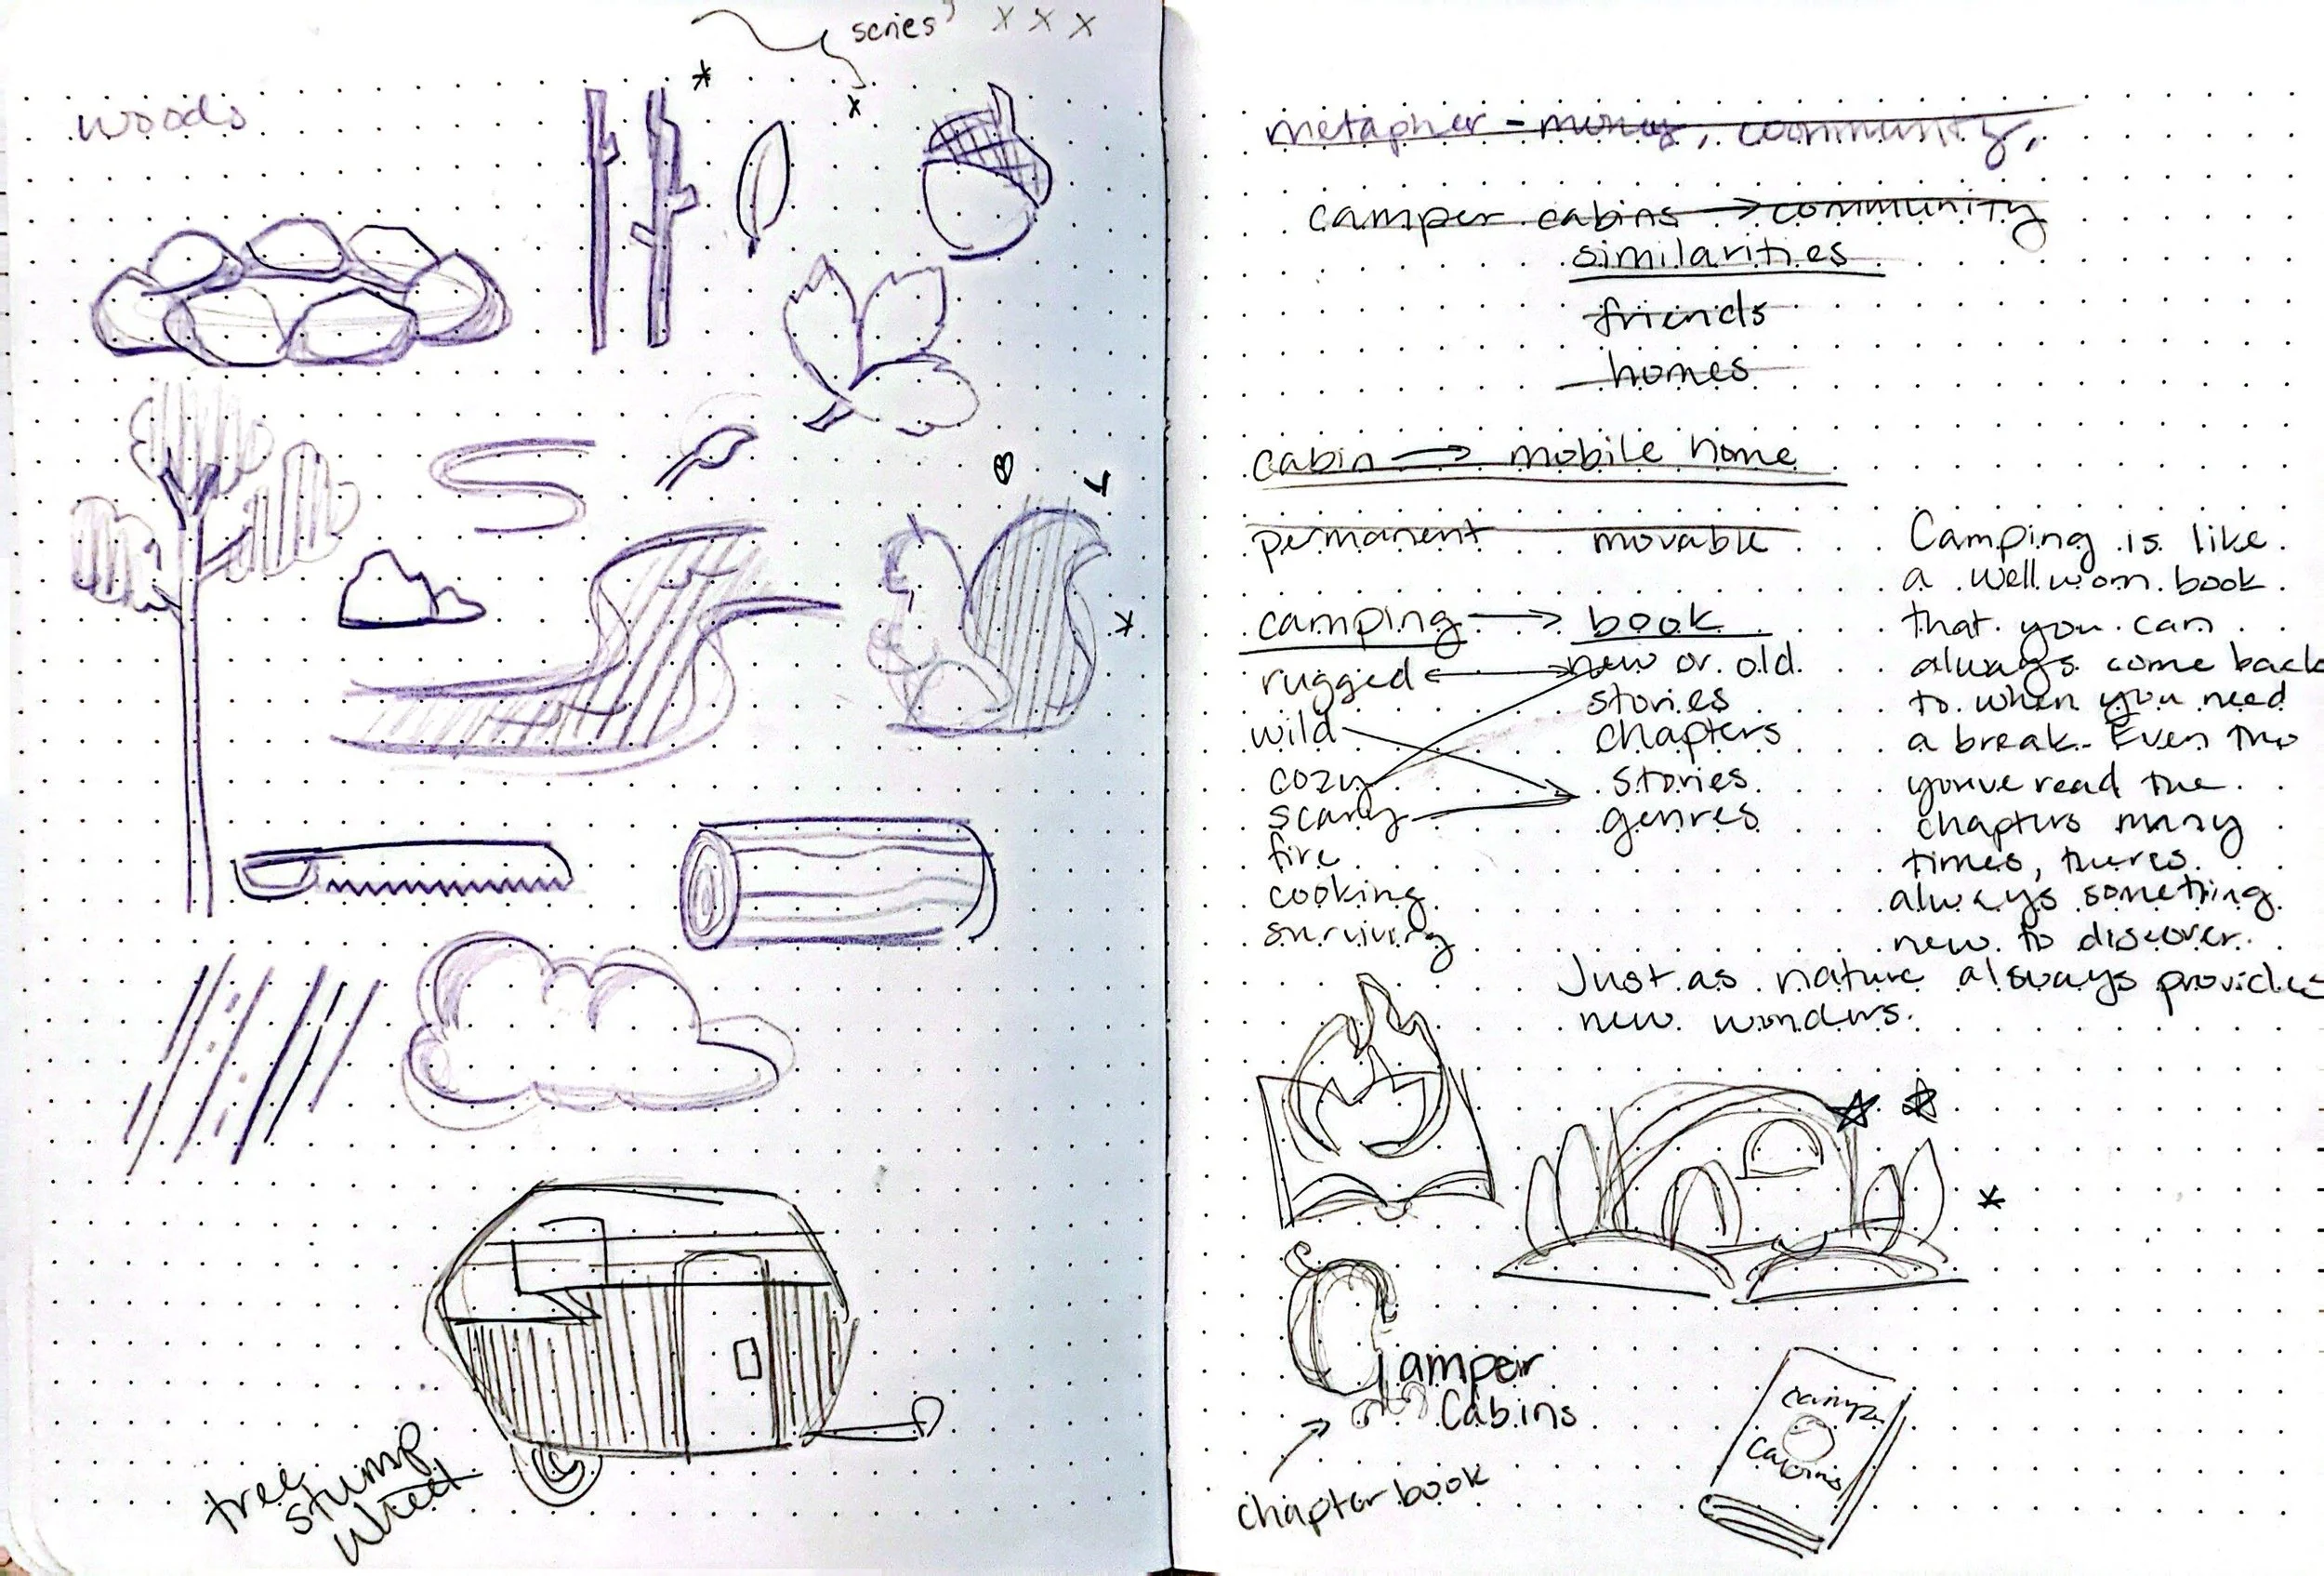 series
x x x
*
x
woods
tree
stump
wheel
metapher - money, community,
camper cabins → community
similarities
friends
homes
cabin → mobile home
permanent movable
camping → book
rugged ↔ new or old
wild stories
cozy chapters
scary stories
fire genres
cooking
surviving
Camping is like
a well worn book
that you can
always come back
to when you need
a break. Even tho
youve read the
chapters many
times, theres
always something
new to discover.
Just as nature always provides
new wonders.
Camper
Cabins
chapter book
camper
Cabins